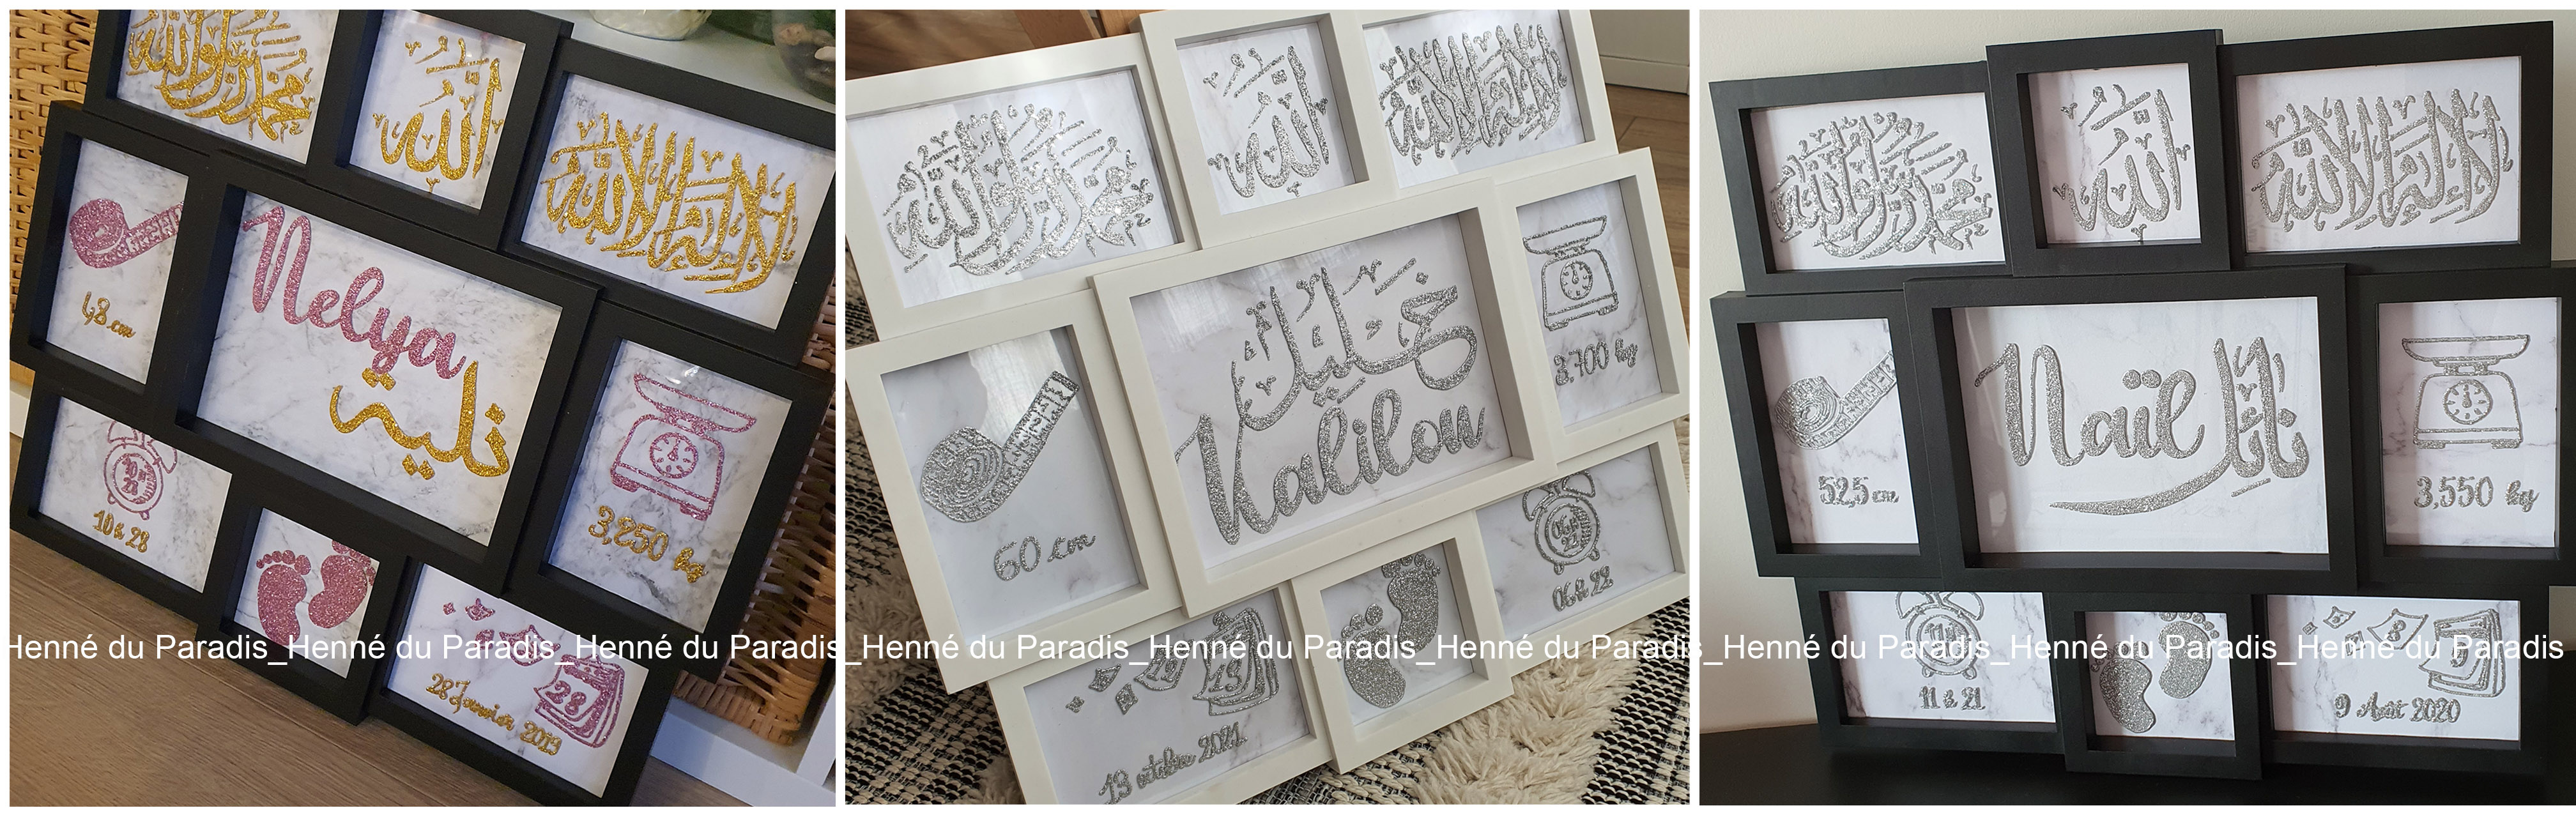 محمد رسول الله
الله
لا إله إلا الله
48 cm
Nelya
10h28
3,250 kg
28 Janvier 2019
28
محمد رسول الله
الله
لا إله إلا الله
3,700 kg
خليل
Kalilou
60 cm
06h22
13 octobre 2021
محمد رسول الله
الله
لا إله إلا الله
52,5 cm
Naïl
نائل
3,550 kg
11h21
9 Août 2020
Henné du Paradis_Henné du Paradis_Henné du Paradis_Henné du Paradis_Henné du Paradis_Henné du Paradis_Henné du Paradis_Henné du Paradis_Henné du Paradis